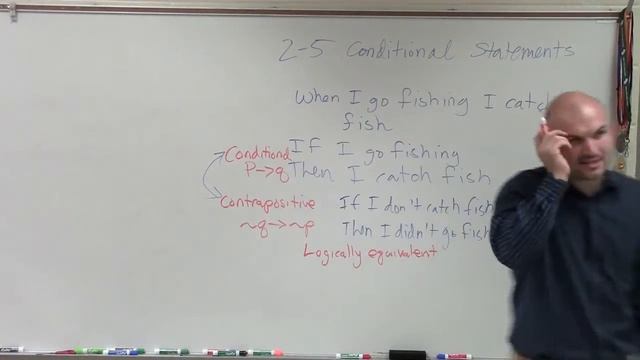 2-5 Conditional Statements
When I go fishing I catch
fish
Conditional If I go fishing
P→q Then I catch fish
Contrapositive If I don't catch fish
~q→~p Then I didn't go fish
Logically equivalent